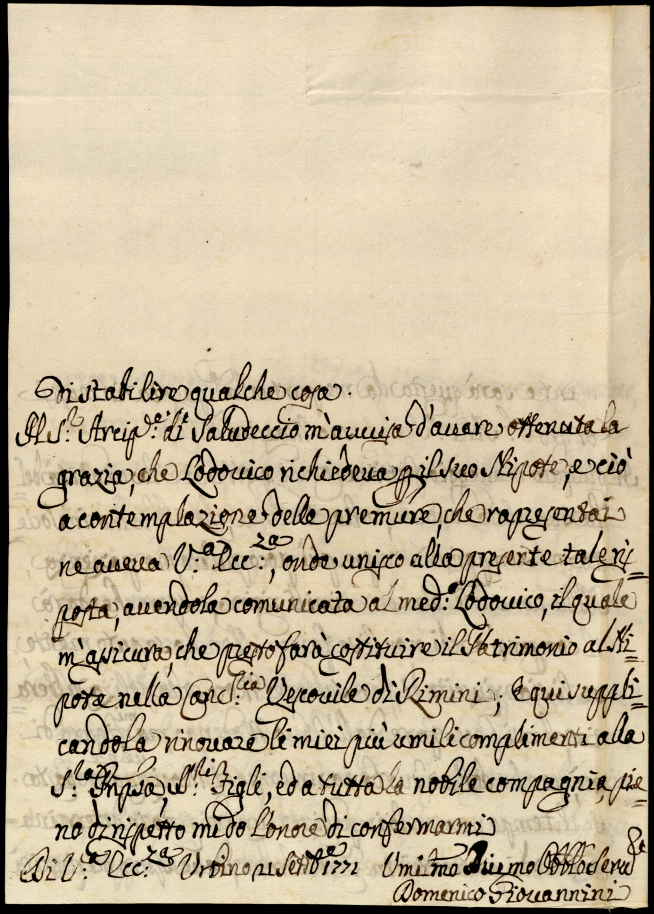 di stabilire qualche cosa.
Il S.r Arcip.e di Saludeccio m'avvisa d'avere ottenuta la
grazia, che Lodovico richiedeva p il suo Nipote, e ciò
a contemplazione delle premure, che rapresentai
ne aveva V.a Ecc.za, onde unisco alla presente tale ris=
posta, avendola comunicata al med.o Lodovico, il quale
m'assicura, che presto farà costituire il Patrimonio al Ni=
pote nella Canc.ria Vescovile di Rimini; E qui suppli=
candola rinovare li miei più umili complimenti alla
S.ra Pnpsa, S.ri Figli, ed a tutta la nobile compagnia, pie=
no di rispetto mi do l'onore di confermarmi
Di V.a Ecc.za Urbino 21 Settb.e 1771 Umilmo Divmo Obblmo Serv.e
Domenico Giovannini